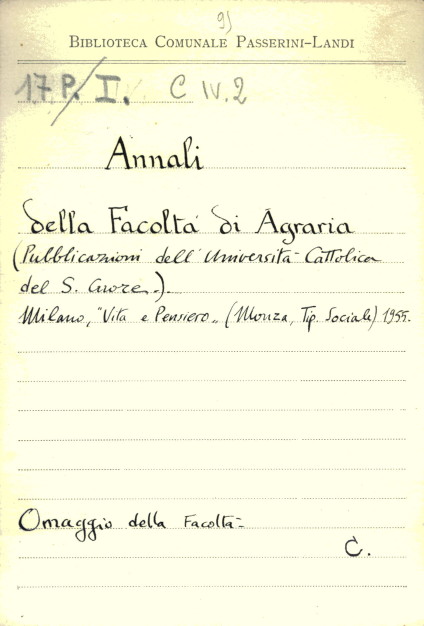 9)
BIBLIOTECA COMUNALE PASSERINI-LANDI
17 P. I. C IV. 2
Annali
della Facoltà di Agraria
(Pubblicazioni dell'Università Cattolica
del S. Cuore.).
Milano, "Vita e Pensiero„ (Monza, Tip. Sociale) 1955.
Omaggio della Facoltà
C.